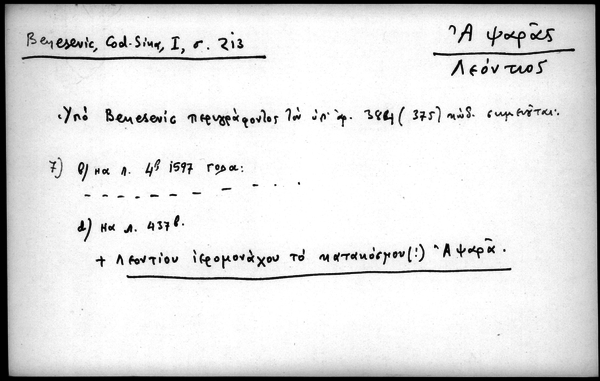 Benesevic, Cod-Sina, I, σ. 213
Ἀψαρᾶς
Λεόντιος
Ὑπό Benesevic περιγράφοντος τόν ὑπ' ἀρ. 3884 (375) κώδ. σημειοῦται:
7) в) на л. 4в 1597 года:
d) на л. 437в.
+ Λεοντίου ἱερομονάχου τό κατακόσμου(!) Ἀψαρᾶ.